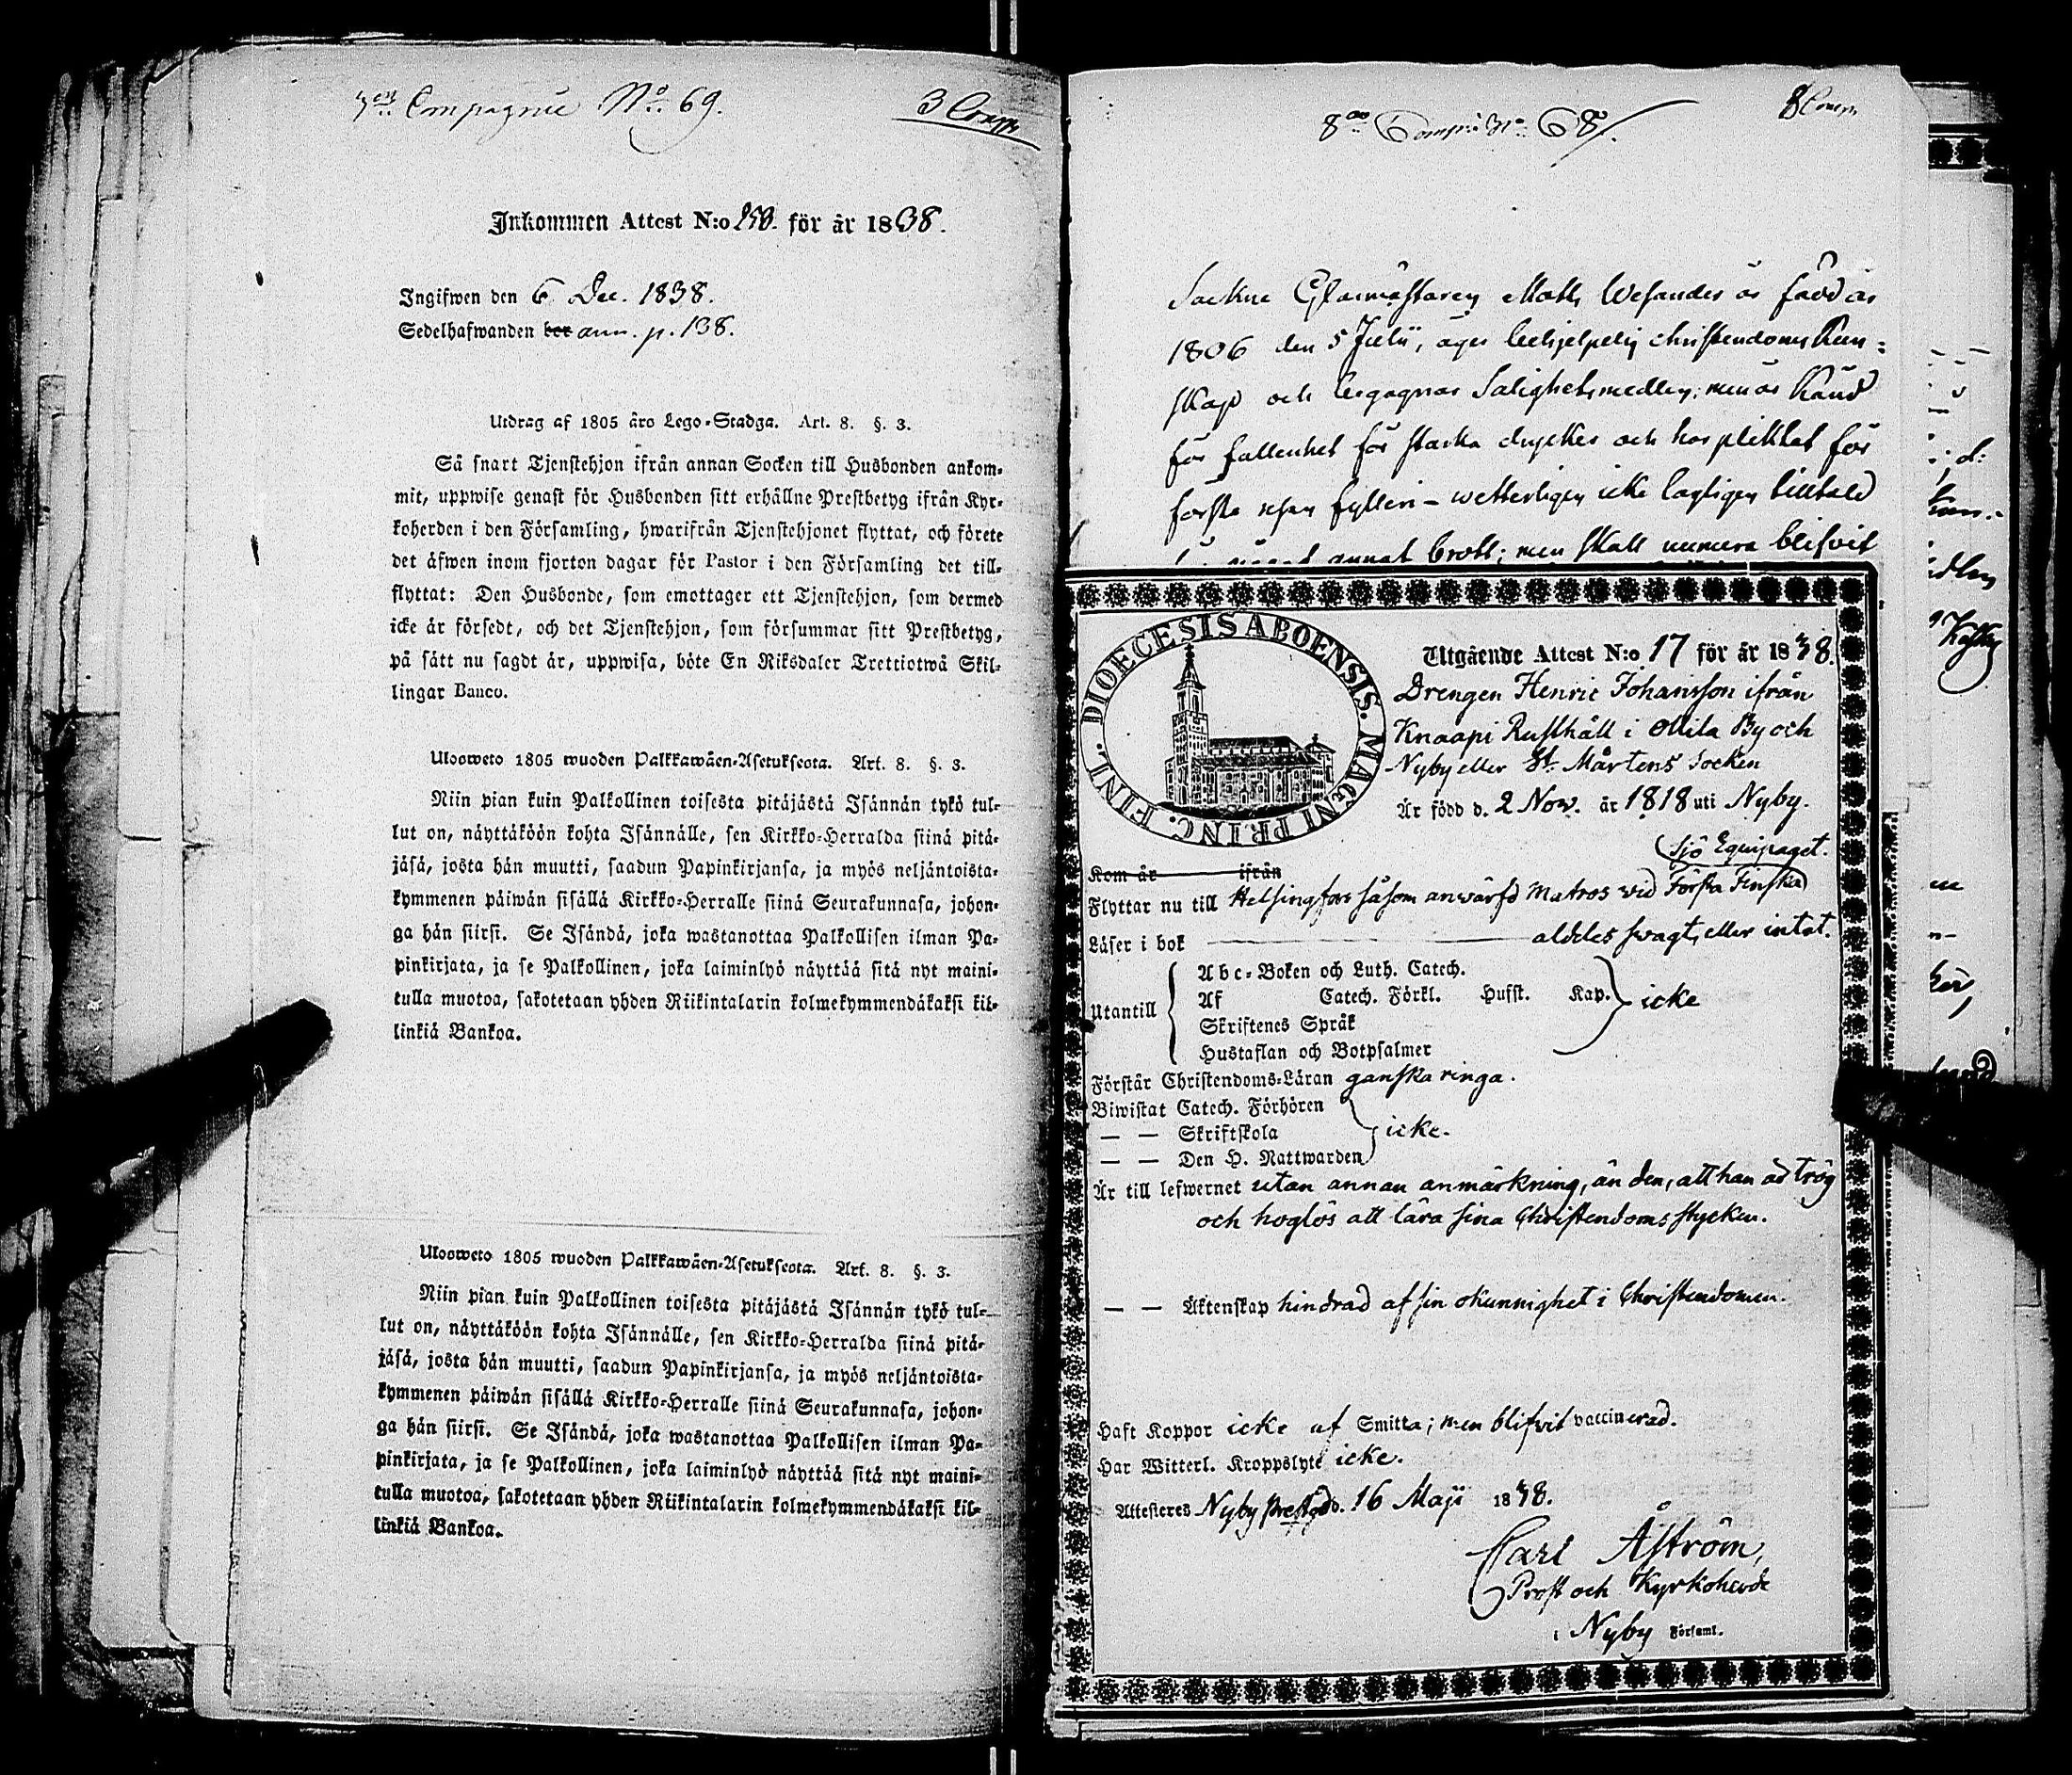 3:die Compagnie No 69.
3 Comp.
Inkommen Attest N:o 250. för år 1838.
Ingifwen den 6 Dec. 1838.
Sedelhafwanden ber ann. p. 138.
Utdrag af 1805 års Lego-Stadga. Art. 8. §. 3.
Så snart Tjenstehjon ifrån annan Socken till Husbonden ankom-
mit, uppwise genast för Husbonden sitt erhållne Prestbetyg ifrån Kyr-
koherden i den Församling, hwarifrån Tjenstehjonet flyttat, och förete
det äfwen inom fjorton dagar för Pastor i den Församling det till-
flyttat: Den Husbonde, som emottager ett Tjenstehjon, som dermed
icke är försedt, och det Tjenstehjon, som försummar sitt Prestbetyg,
på sätt nu sagdt är, uppwisa, böte En Riksdaler Trettiotwå Skil-
lingar Banco.
Ulosweto 1805 wuoden Palkkawäen-Asetuksesta. Art. 8. §. 3.
Niin pian kuin Palkollinen toisesta pitäjästä Isännän tykö tul-
lut on, näyttäköön kohta Isännälle, sen Kirkko-Herralda siinä pitä-
jäsä, josta hän muutti, saadun Papinkirjansa, ja myös neljäntoista-
kymmenen päiwän sisällä Kirkko-Herralle siinä Seurakunnasa, johon-
ga hän siirsi. Se Isändä, joka wastanottaa Palkollisen ilman Pa-
pinkirjata, ja se Palkollinen, joka laiminlyö näyttää sitä nyt maini-
tulla muotoa, sakotetaan yhden Riikintalarin kolmekymmendäkaksi kil-
linkiä Bankoa.
Ulosweto 1805 wuoden Palkkawäen-Asetuksesta. Art. 8. §. 3.
Niin pian kuin Palkollinen toisesta pitäjästä Isännän tykö tul-
lut on, näyttäköön kohta Isännälle, sen Kirkko-Herralda siinä pitä-
jäsä, josta hän muutti, saadun Papinkirjansa, ja myös neljäntoista-
kymmenen päiwän sisällä Kirkko-Herralle siinä Seurakunnasa, johon-
ga hän siirsi. Se Isändä, joka wastanottaa Palkollisen ilman Pa-
pinkirjata, ja se Palkollinen, joka laiminlyö näyttää sitä nyt maini-
tulla muotoa, sakotetaan yhden Riikintalarin kolmekymmendäkaksi kil-
linkiä Bankoa.
8de Comp: No 68.
8 Comp.
Sockne Glasmästaren Math. Wesander är född år
1806 den 5 Julii, äger behjelpelig christendoms Kun-
skap och begagnar Salighetsmedlen; men är känd
för fallenhet för starka drycker och har pliktat för
första resan fylleri - wetterligen icke lagligen tilltald
något annat brott; men skall numera blifvit
DIOECESIS ABOENSIS. MAGNI PRINC. FINL.
Utgående Attest N:o 17 för år 1838.
Drengen Henric Johansson ifrån
Knaapi Rusthåll i Ollila By och
Nyby eller St. Mårtens Socken
Är född d. 2 Nov. år 1818 uti Nyby.
Sjö Equipaget.
Kom år ifrån
Flyttar nu till Helsingfors såsom anwärfd Matros wid Första Finska
Läser i bok aldeles swagt, eller intet.
Utantill
Abc-Boken och Luth. Catech.
Af Catech. Förkl. Hufst. Kap.
icke
Skriftenes Språk
Hustaflan och Botpsalmer
Förstår Christendoms-Läran ganska ringa.
Biwistat Catech. Förhören
— — Skriftskola
icke.
— — Den H. Nattwarden
Är till lefwernet utan annan anmärkning, än den, att han är trög
och hoglös att lära sina Christendoms stycken.
— — Äktenskap hindrad af sin okunnighet i Christendomen.
Haft Koppor icke af Smitta; men blifvit vaccinerad.
Har Witterl. Kroppslyte icke.
Attesteres Nyby Prestgd d. 16 Maji 1838.
Carl Åström,
Prost och Kyrkoherde
i Nyby Församl.